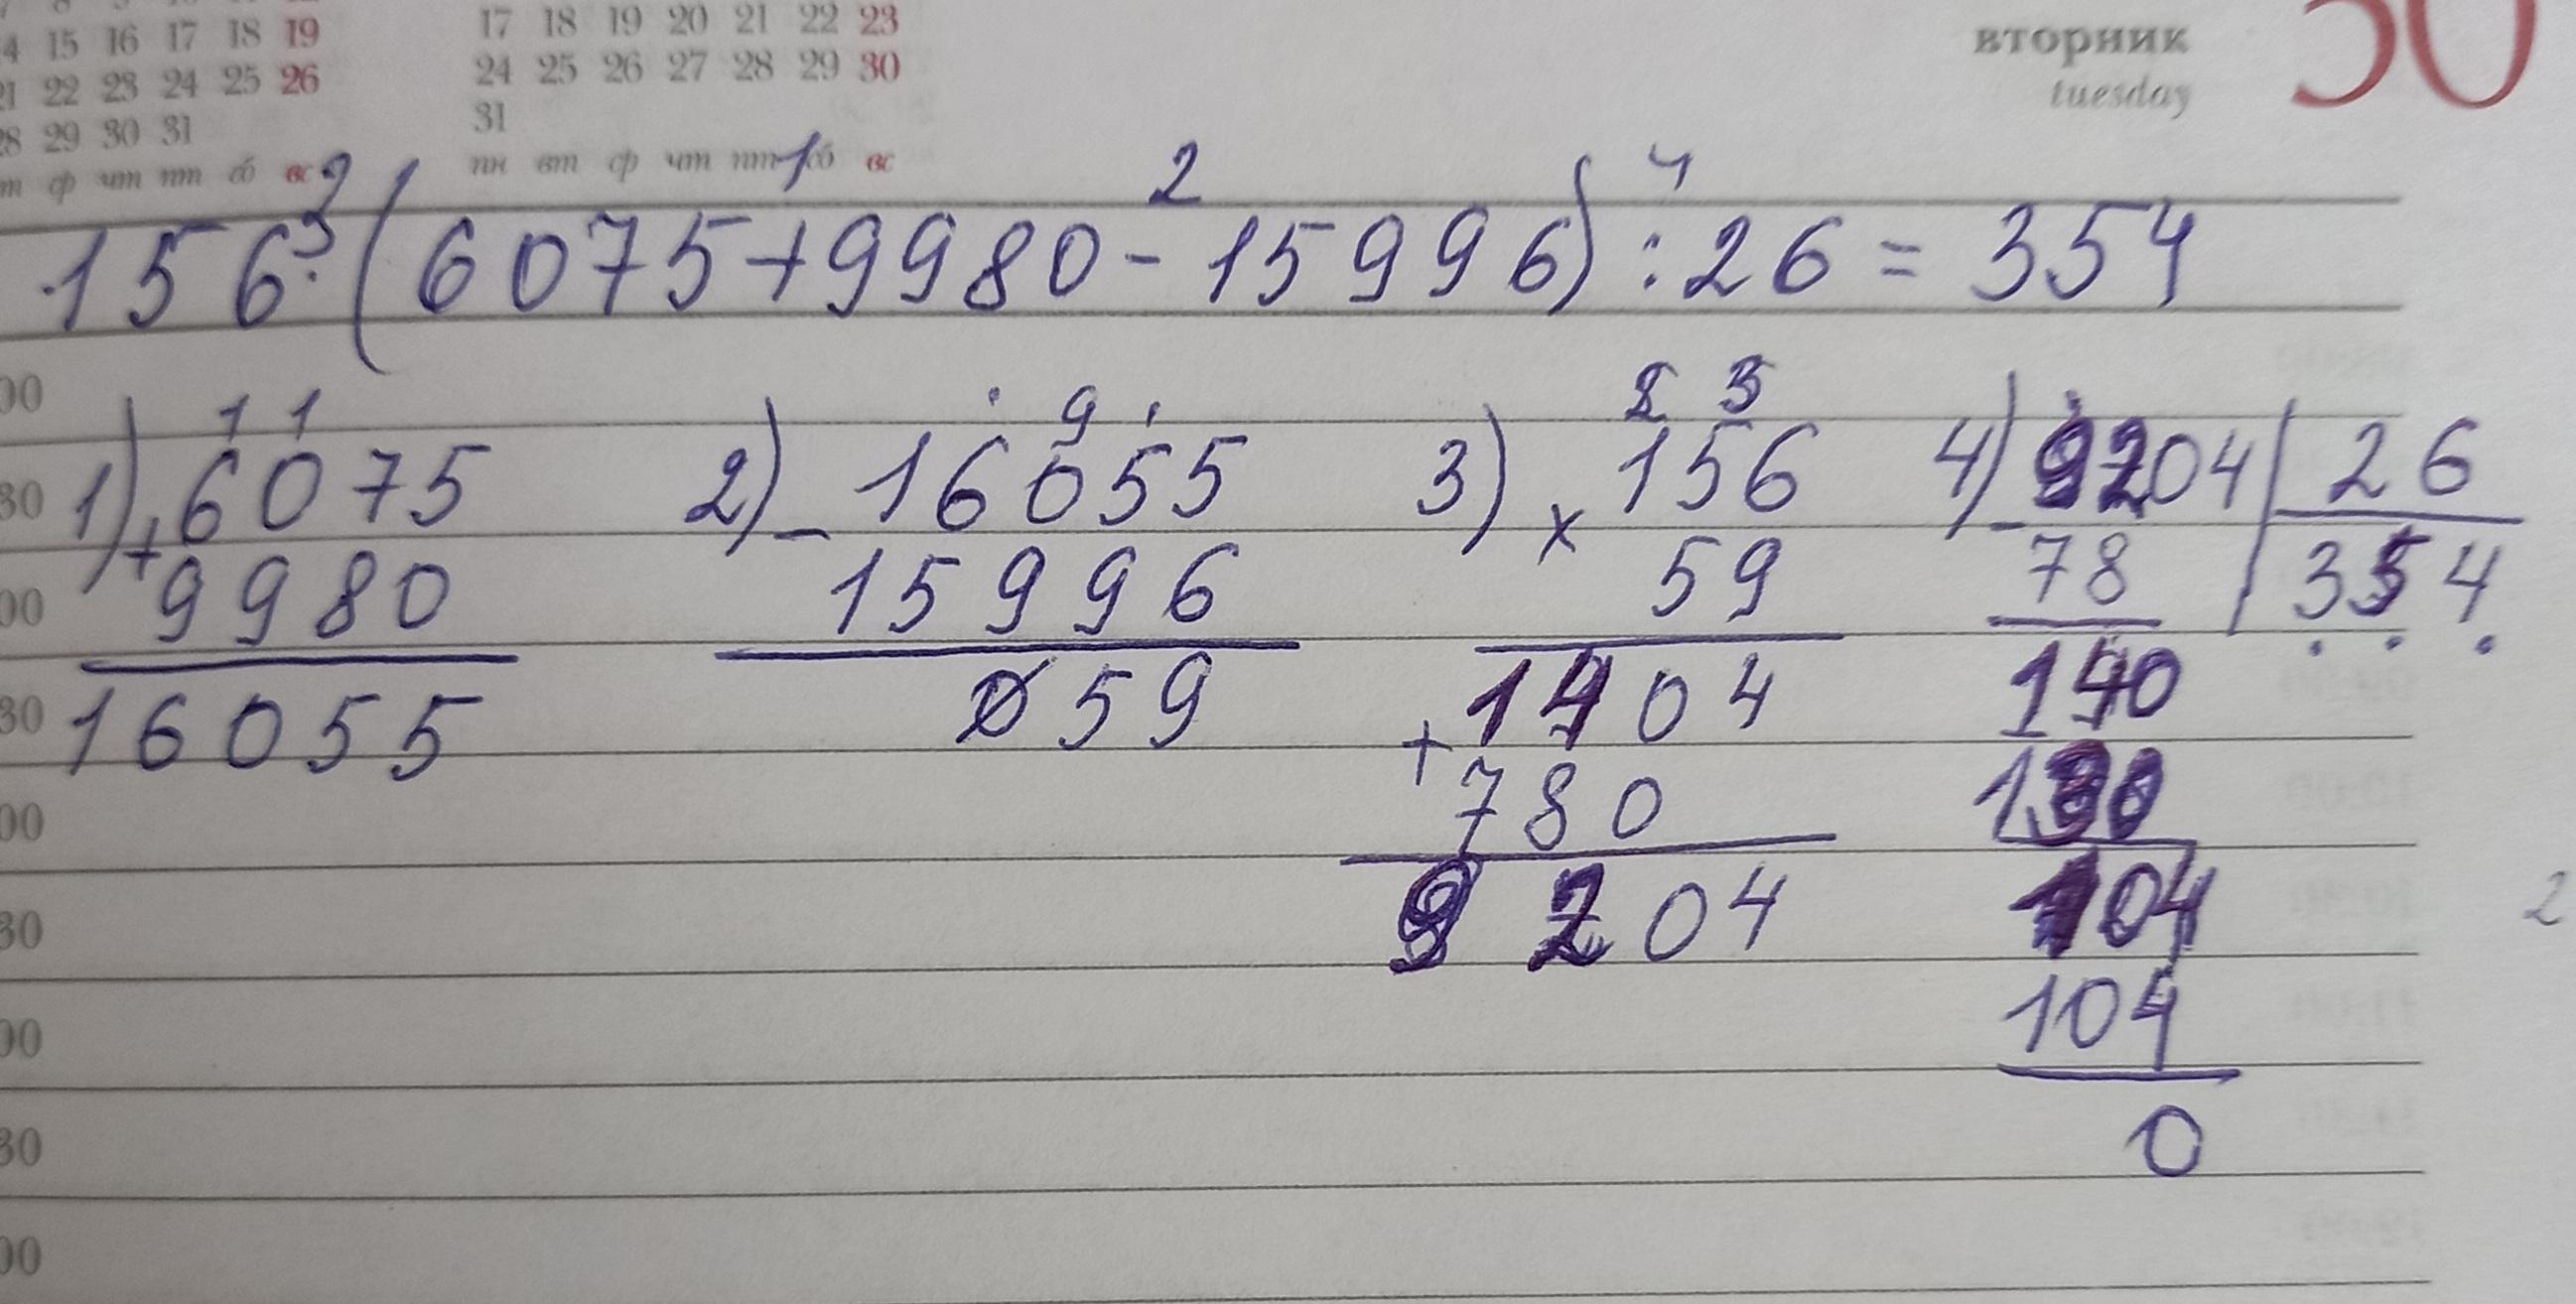 14 15 16 17 18 19
21 22 23 24 25 26
28 29 30 31
ср чт пт сб вс
17 18 19 20 21 22 23
24 25 26 27 28 29 30
31
пн вт ср чт пт сб вс
вторник
tuesday
30
3 1 2 4
156 · (6075 + 9980 - 15996) : 26 = 354
1) 1 1
6075
+
9980
16055
2) 9
16055
-
15996
059
3) 2 3
156
×
59
1404
+
780
9204
4) 9204 | 26
-
78 354
140
130
104
104
0
2